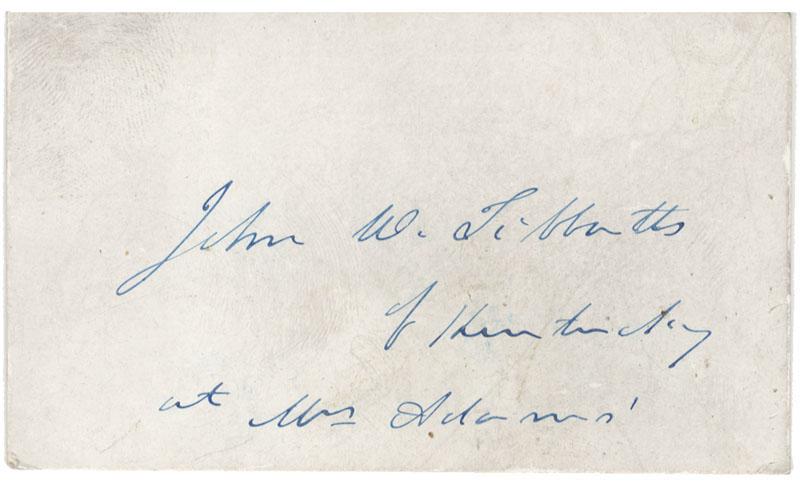 John W. Tibbatts
of Kentucky
at Mrs Adams'